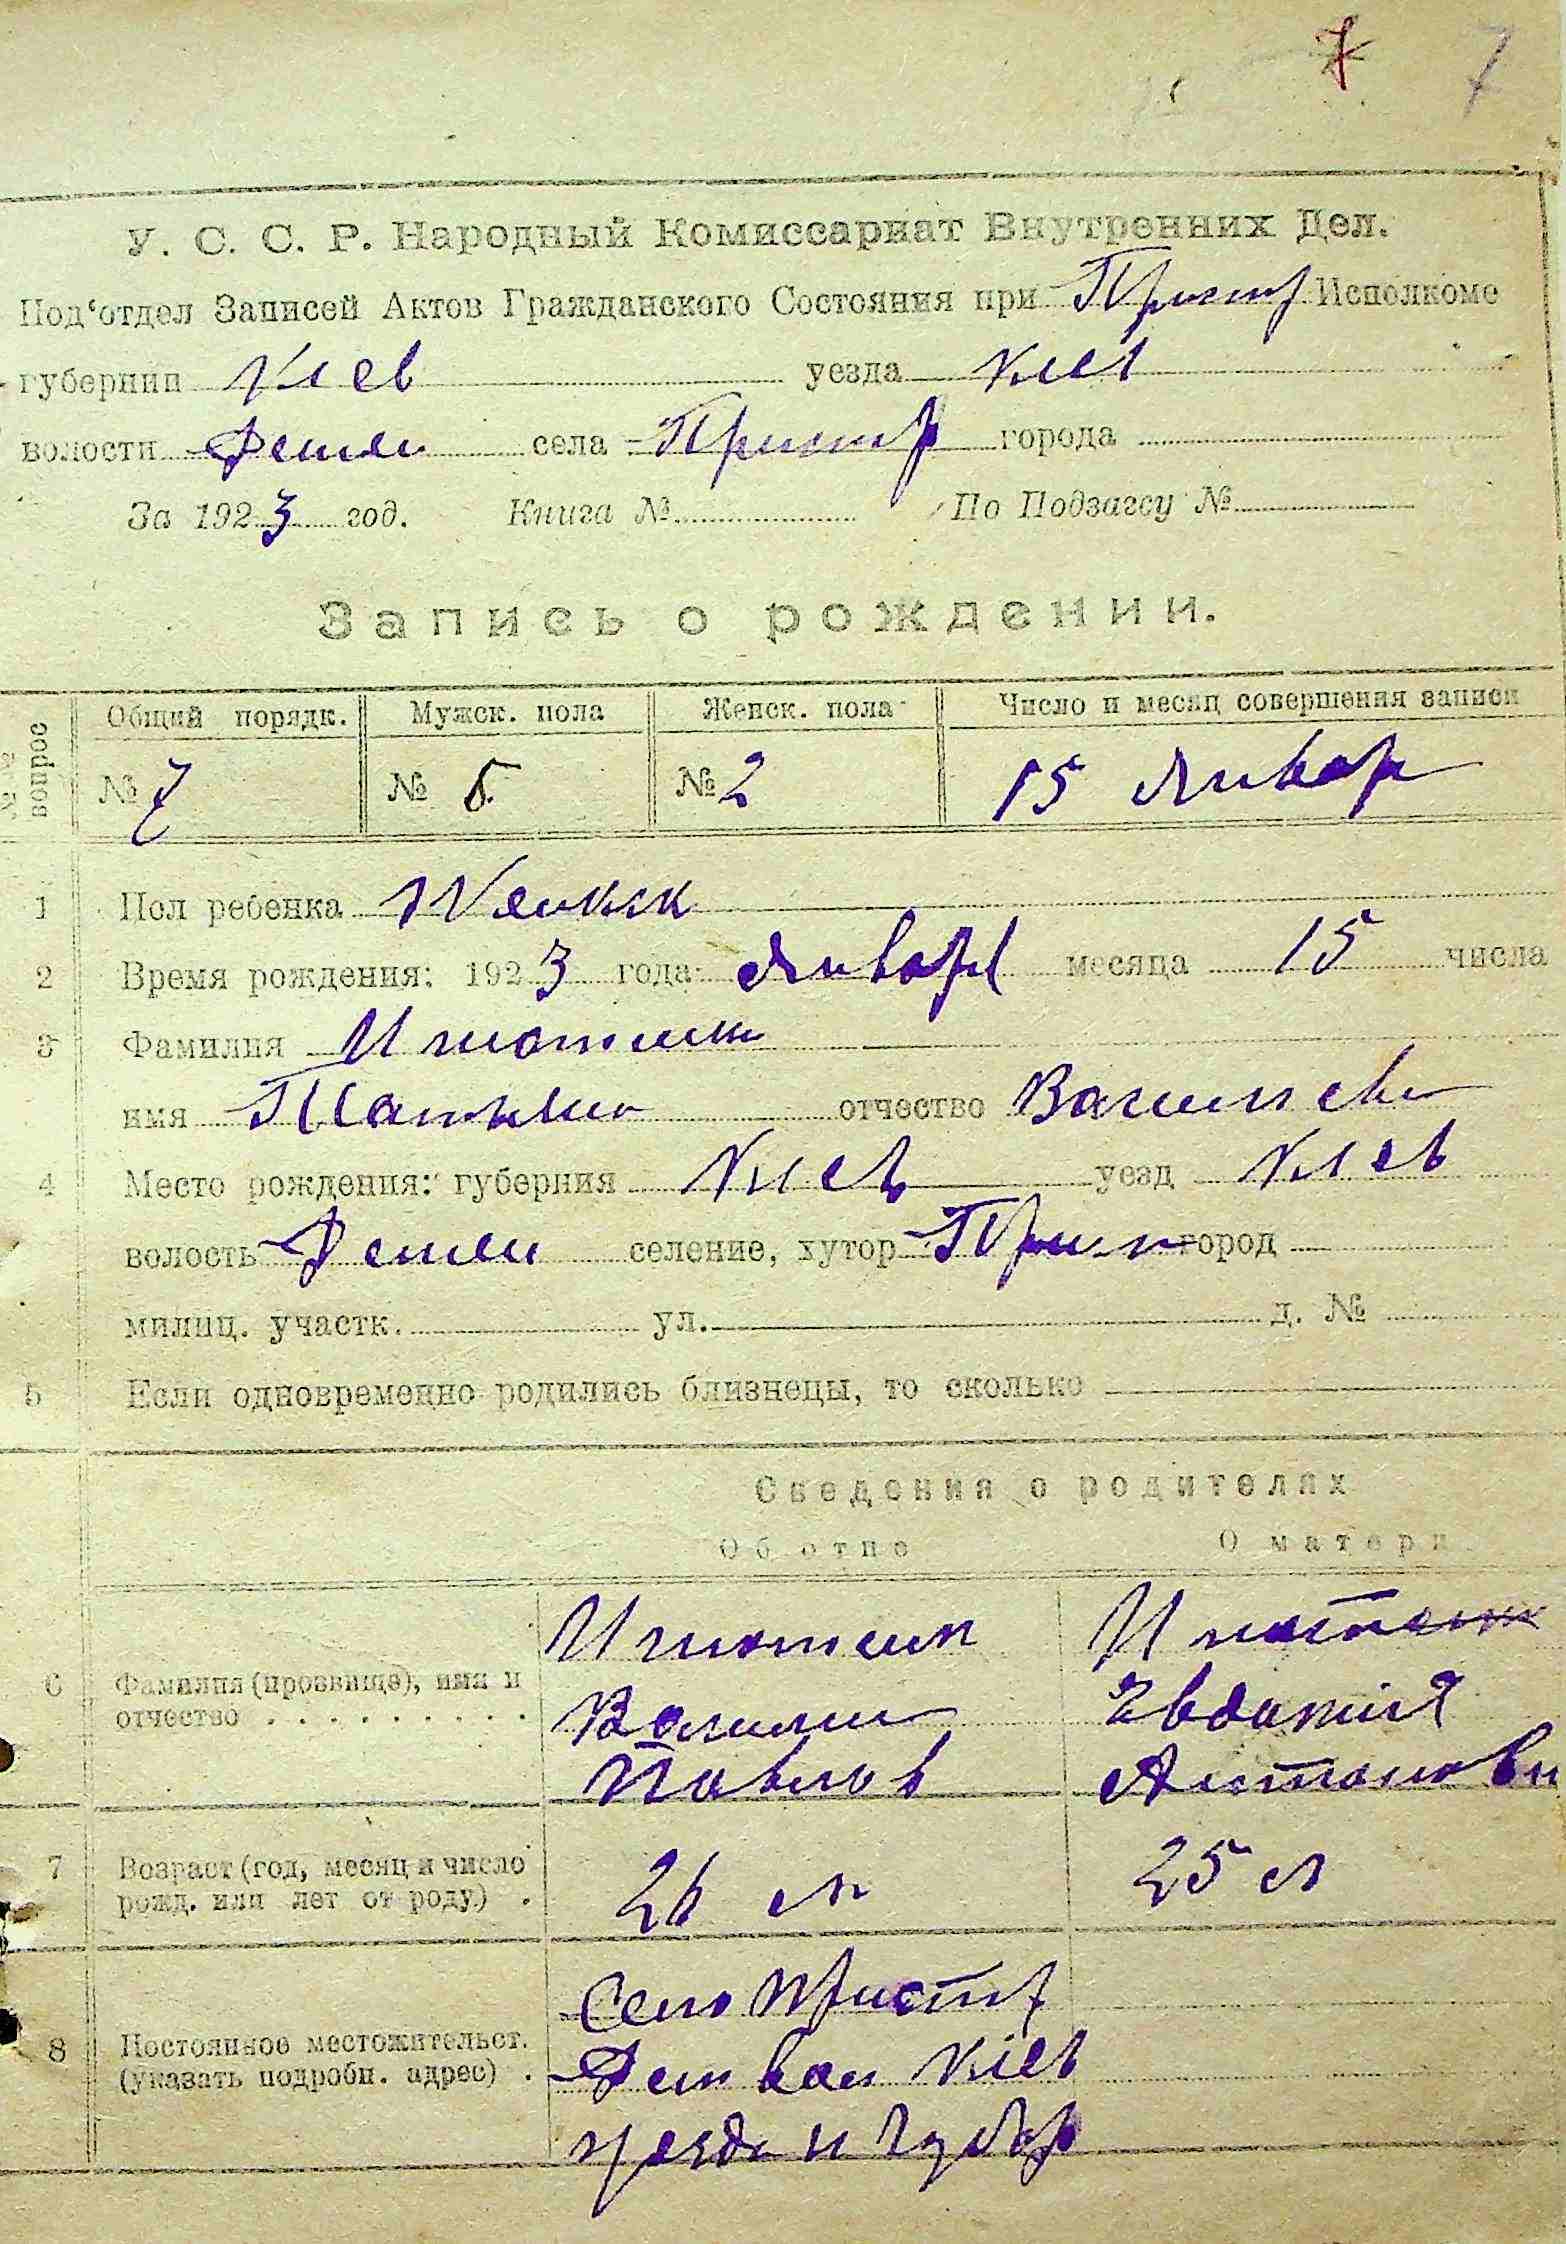 7 7
У. С. С. Р. Народный Комиссариат Внутренних Дел.
Под‘отдел Записей Актов Гражданского Состояния при Исполкоме
губернии Киев уезда Киев
волости села города
За 1923 год. Книга № По Подзагсу №
Запись о рождении.
№№ вопрос Общий порядк. Мужск. пола Женск. пола Число и месяц совершения записи
№ 7 № 5 № 2 15 Январ
1 Пол ребенка Женск
2 Время рождения: 1923 года Январ месяца 15 числа
3 Фамилия
имя Татьяна отчество Васильев
4 Место рождения: губерния Киев уезд Киев
волость селение, хутор город
милиц. участк. ул. д. №
5 Если одновременно родились близнецы, то сколько
Сведения о родителях
Об отце О матери
6 Фамилия (прозвище), имя и
отчество
Василий Евдокия
Павлов Антоновн
7 Возраст (год, месяц и число
рожд. или лет от роду) . 26 л 25 л
8 Постоянное местожительст.
(указать подробн. адрес) .
Село
Киев
уезда и губер